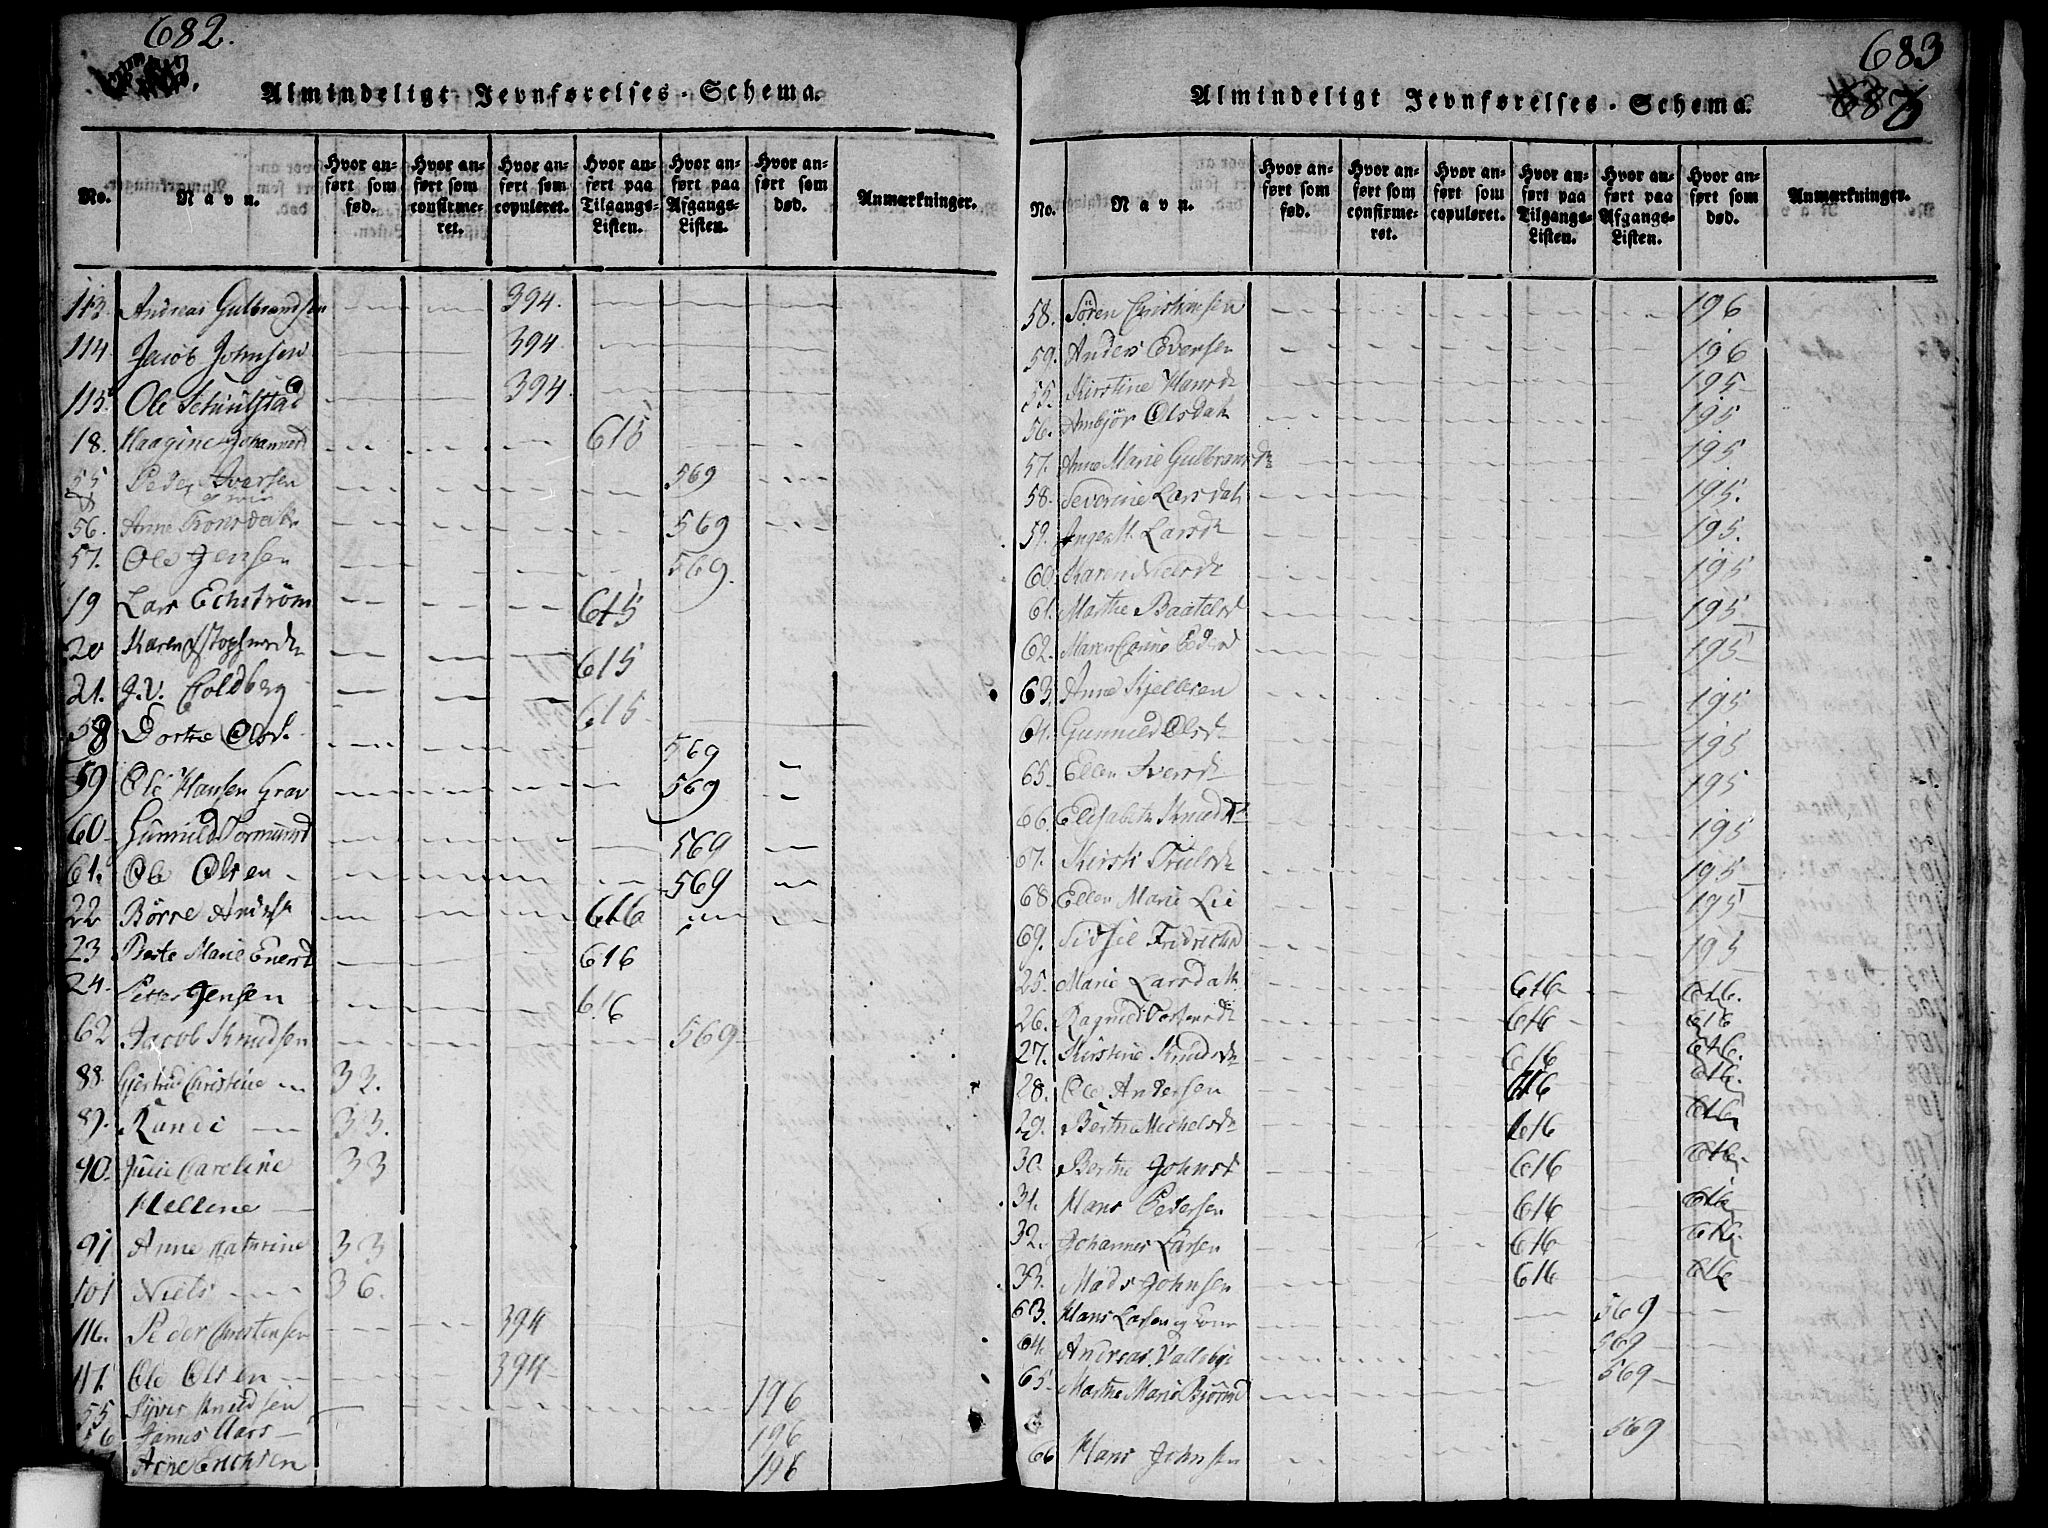 682.
Almindeligt Jevnførelses-Schema.
No.
Navn.
Hvor anført som fød.
Hvor anført som confirmeret.
Hvor anført som copuleret.
Hvor anført paa Tilgangs-Listen.
Hvor anført paa Afgangs-Listen.
Hvor anført som død.
Anmærkninger.
113. Andreas Gulbrandsen 394.
114 Jacob Johnsen 394
115. Ole Schulstad 394
18. 615
55 Peder Iversen 569
56. Anne 569
57. Ole Jensen 569.
19 Lars Echström 615
20 Karen 615
21. J.V. Coldberg 615
58 Dorthe Olsd. 569
59 Ole Hansen Grav 569
60 Gunnild Tormunsd 569
61. Ole Olsen 569
22 Börre 616
23 Berte Marie Enersd 616
24. Petter Jensen 616
62 Jacob Knudsen 569
88. Gjertrud Christine 32.
89. Randi 33.
90. Julie Caroline 33
Hellene
91 Anne Kathrine 33
101 Niels 36.
116. Peder Christensen 394
117. Ole Olsen 394
55 Syver Knudsen 196
56 James Mars 196
Arne Erichsen 196
683
Almindeligt Jevnførelses-Schema.
No.
Navn.
Hvor anført som fød.
Hvor anført som confirmeret.
Hvor anført som copuleret.
Hvor anført paa Tilgangs-Listen.
Hvor anført paa Afgangs-Listen.
Hvor anført som død.
Anmærkninger.
58. Sören Christensen 196
59. Anders Evensen 196
55. Kirstine Hansdt 195
56. Ambjör Olsdatt 195
57. Anne Marie Gulbransdt 195
58. Severine Larsdatt 195.
59. Inger M. Larsdt 195.
60. Karen Nielsdt 195
61. Marthe Baatelsd 195
62. Maren 195
63. Anne Kjellesen 195
64. Gunnild Olsdt 195
65. Ellen Iversdt 195
66. Elisabeth Knudsdt 195
67. Kirsti Trulsdt 195
68 Ellen Marie Lie 195
69. Sidsel Fridrichsd 195
25. Marie Larsdatt 616 616.
26. Ragnild 616 616
27. Kirstine Knudsdt 616 616.
28. Ole Andersen 616 616.
29. Berthe Michelsdt 616 616
30. Berthe Johnsd 616 616
31. Hans Petersen 616 616
32. Johannes Larsen 616 616.
33. Mads Johnsen 616 616
63. Hans Larsen og 569
64. Andreas 569
65. Marthe Marie Bjørnsd 569
66 Hans Johnsen 569